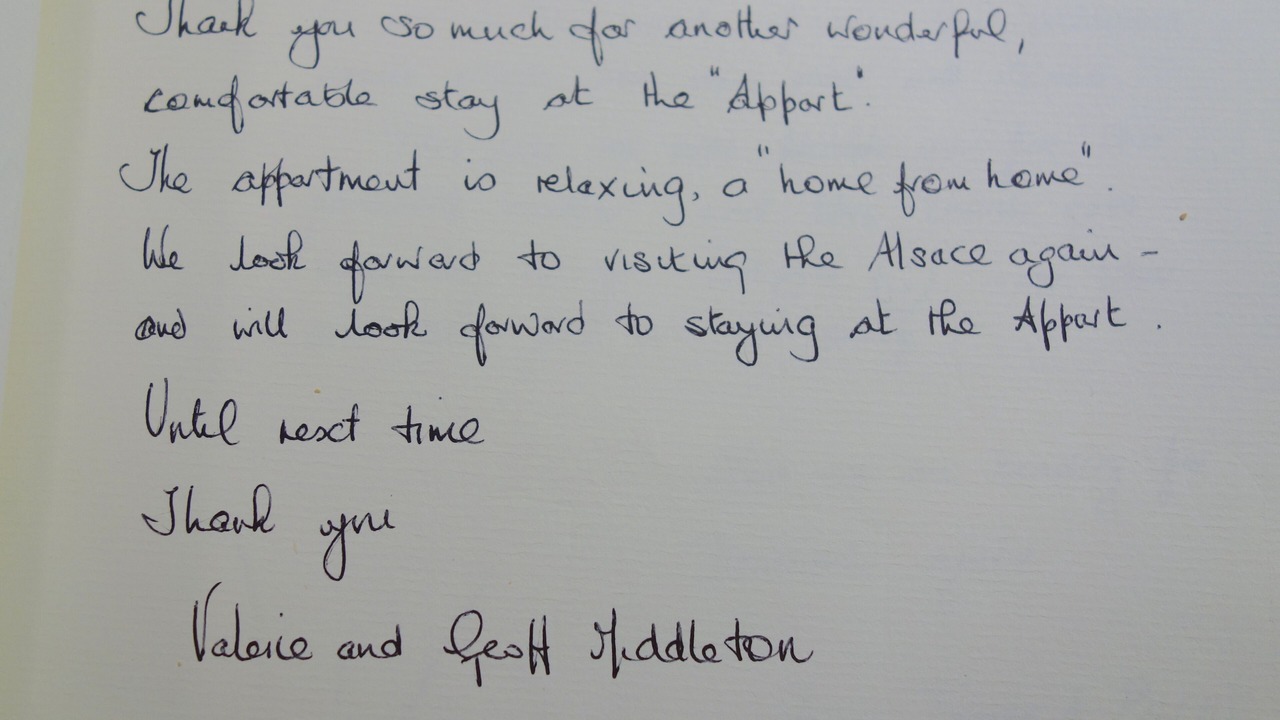 Thank you so much for another wonderful,
comfortable stay at the "Appart".
The appartment is relaxing, a "home from home".
We look forward to visiting the Alsace again -
and will look forward to staying at the Appart.
Until next time
Thank you
Valerie and Geoff Middleton